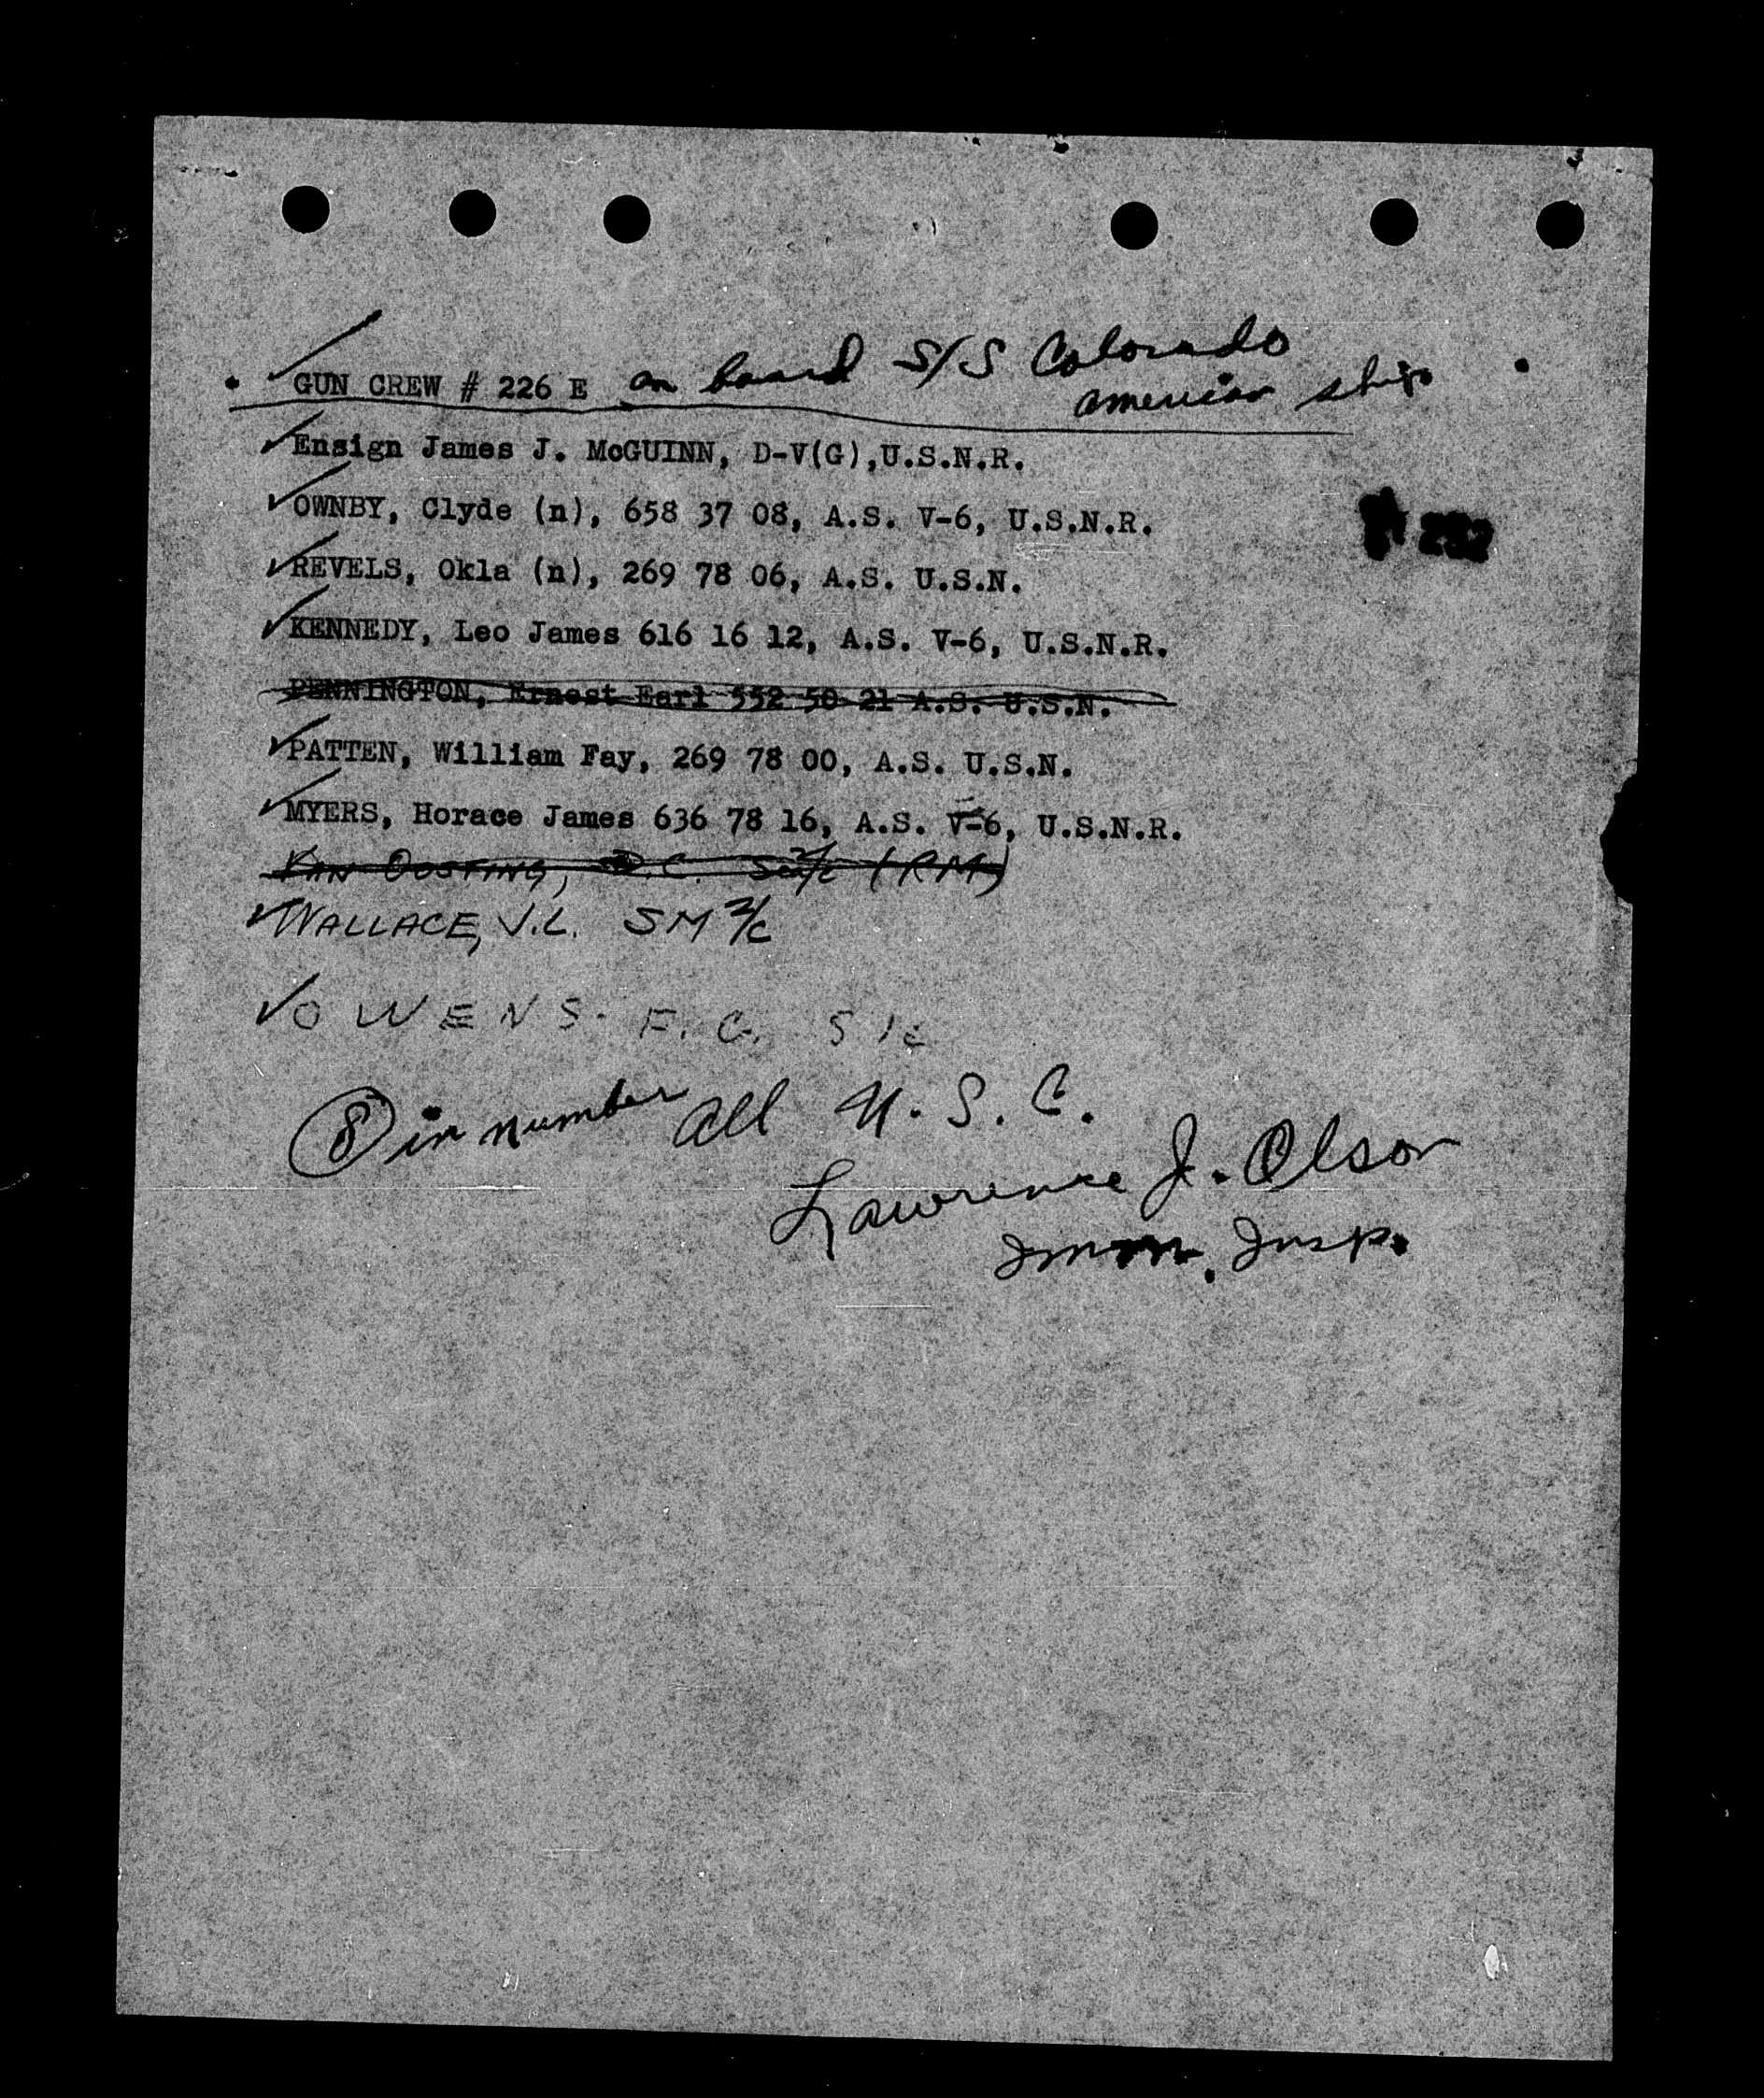 GUN CREW # 226 E on board S/S Colorado
american ship
Ensign James J. McGUINN, D-V(G),U.S.N.R.
OWNBY, Clyde (n), 658 37 08, A.S. V-6, U.S.N.R.
REVELS, Okla (n), 269 78 06, A.S. U.S.N.
KENNEDY, Leo James 616 16 12, A.S. V-6, U.S.N.R.
PENNINGTON, Ernest Earl 552 50 21 A.S. U.S.N.
PATTEN, William Fay, 269 78 00, A.S. U.S.N.
MYERS, Horace James 636 78 16, A.S. V-6, U.S.N.R.
VAN OOSTING, C. 2/c (RM)
WALLACE, V.L. SM 2/c
OWENS. F. G. S1c
8 in number all U.S.C.
Lawrence J. Olson
Imm. Insp.